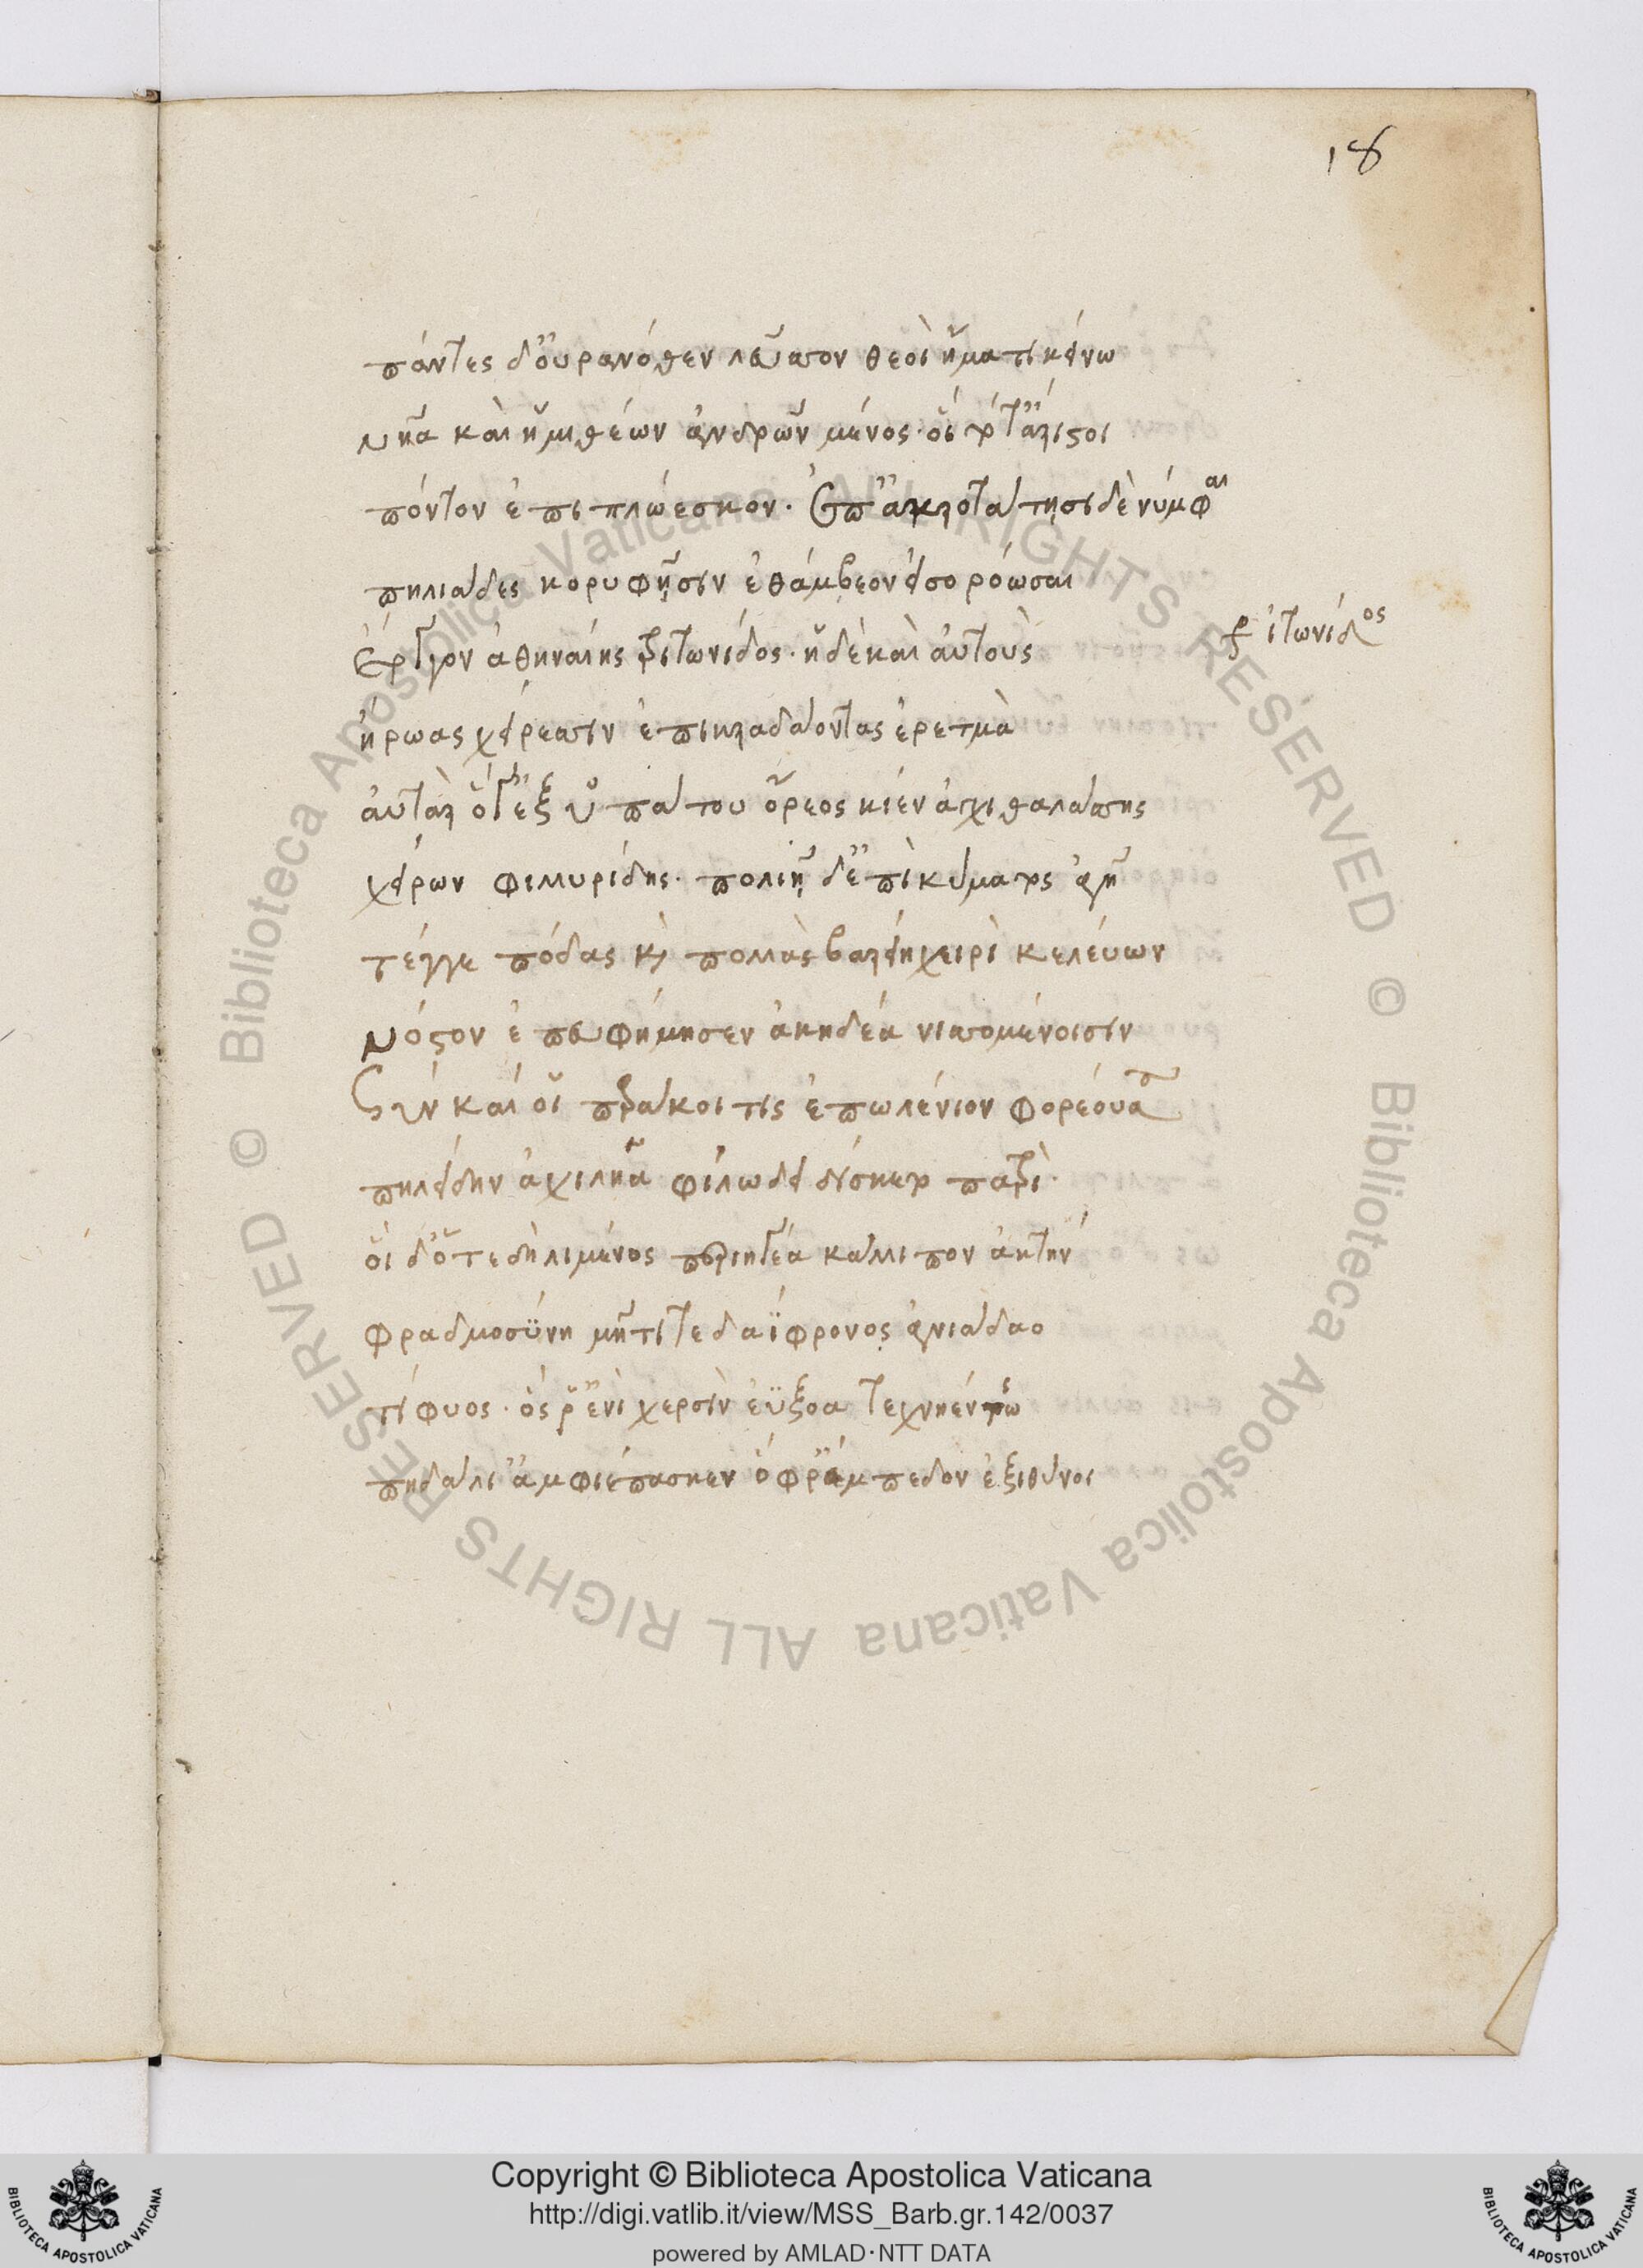 18
πάντες δ' οὐρανόθεν λεῦσσον θεοὶ ἤματι κείνω
νῆα καὶ ἡμιθέων ἀνδρῶν μένος· οἳ τότ' ἄριστοι
πόντον ἐπιπλώεσκον. ἐπ' ἀκροτάτησι δὲ νύμφαι
πηλιάδες κορυφῇσιν ἐθάμβεον εἰσορόωσαι
ἔργον ἀθηναίης τριτωνίδος· ἠδὲ καὶ αὐτοὺς
γρ ἰτωνίδος
ἥρωας χείρεσσιν ἐπικραδάοντας ἐρετμὰ
αὐτὰρ ὅγ' ἐξ ὑπάτου ὄρεος κίεν ἄγχι θαλάσσης
χείρων φιλλυρίδης· πολιῇ δ' ἐπὶ κύματος ἀγῇ
τέγγε πόδας κὶ πολλὰ βαρείῃ χειρὶ κελεύων
νόστον ἐπευφήμησεν ἀκηδέα νισσομένοισιν
σὺν καί οἱ παράκοιτις ἐπωλένιον φορέουσα
πηλείδην ἀχιλῆα φίλω δειδίσκετο πατρί·
οἱ δ' ὅτε δὴ λιμένος περιηγέα κάλλιπον ἀκτήν
φραδμοσύνη μήτί τε δαΐφρονος ἁγνιάδαο
τίφυος· ὅς ῥ' ἐνὶ χερσὶν ἐΰξοα τεχνηέντως
πηδάλι' ἀμφιέπεσκεν ὄφρ' ἔμπεδον ἐξιθύνοι
Copyright © Biblioteca Apostolica Vaticana
http://digi.vatlib.it/view/MSS_Barb.gr.142/0037
powered by AMLAD·NTT DATA